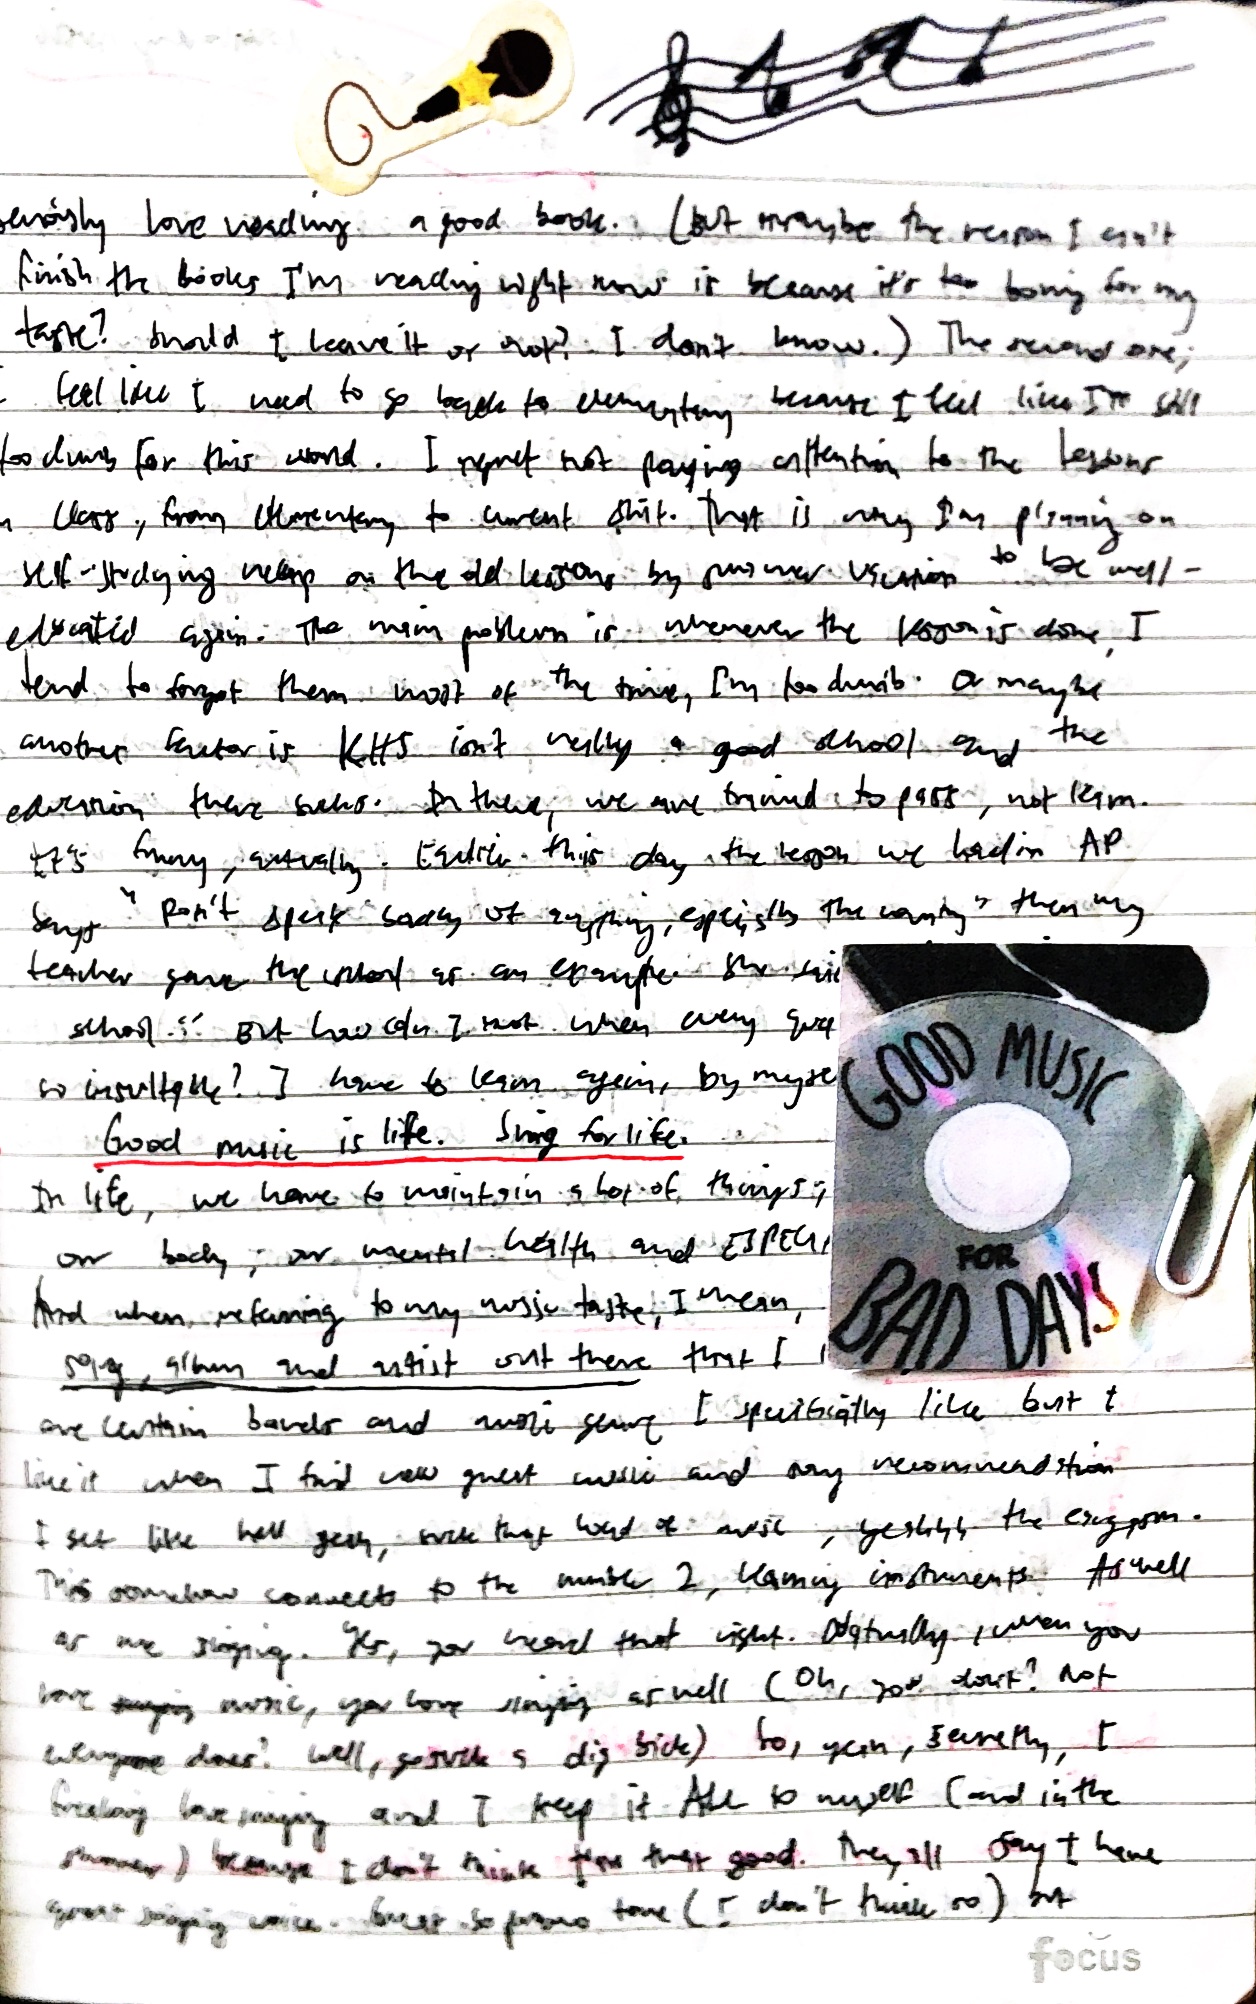 love reading a good book. (but maybe the reason I can't
finish the books I'm reading right now is because it's too boring for my
taste? Should I leave it or not? I don't know.) The second one,
feel like I need to go back to elementary because I feel like I'm still
too dumb for this world. I regret not paying attention to the lessons
class, from elementary to current shit. That is why I'm planning on
self-studying on the old lessons by summer vacation to be well-
educated again. The main problem is whenever the lesson is done, I
tend to forget them most of the time, I'm too dumb. Or maybe
another factor is KHS isn't really a good school and the
education there sucks. In there, we are trained to pass, not learn.
It's funny, actually. Earlier this day, the lesson we had in AP
says "Don't speak badly of anything, especially the country" then my
teacher gave the school as an example. She
school." But how can I not when every
so insultable? I have to learn again, by
Good music is life. Sing for life.
In life, we have to maintain a lot of things;
our body, our mental health and
And when referring to my music taste, I mean,
song, album and artist out there that I
are certain bands and music genre I specifically like but I
like it when I find new music and any recommendation
I get like hell yeah, that kind of music, the
This somehow connects to the number 2, learning instruments. As well
as me singing. Yes, you heard that right. Naturally, when you
love music, you love singing as well (Oh, you don't? Not
everyone does? Well, go suck a dig bick) So, yeah, secretly, I
freaking love singing and I keep it ALL to myself (and in the
) because I don't think I'm that good. They all say I have
great singing voice. Great soprano tone (I don't think so) but
GOOD MUSIC
FOR
BAD DAYS
focus